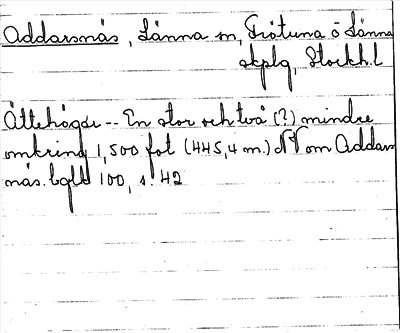 Addarsnäs, Länna sn, Frötuna o Länna
skplg, Stockh.l
Ättehögar -- En stor och två (?) mindre
omkring 1,500 fot (445,4 m.) NV om Addars
näs. bgld 100, s. 42